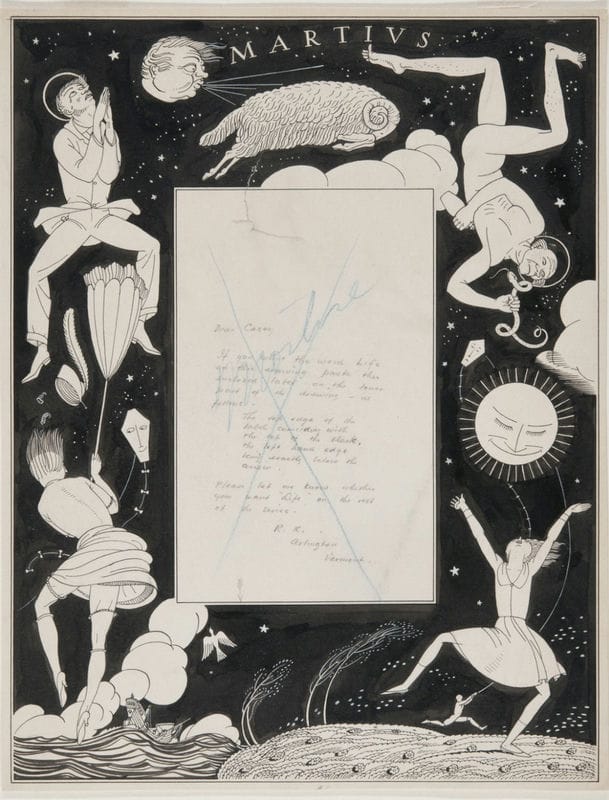 MARTIVS
Dear
If you the word Life
on this drawing paste the
enclosed label on the lower
part of the drawing - as
follows:
The top edge of the
label coinciding with
the top of the black,
the left hand edge
being exactly below the
Please let me know whether
you want "Life" on the rest
of the series.
R. K.
Arlington
Vermont.